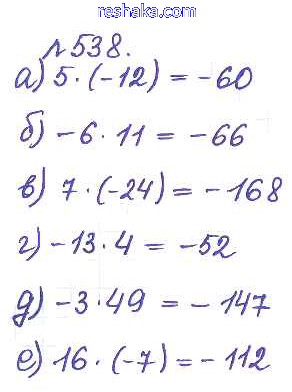 reshaka.com
№538.
а) 5 · (-12) = -60
б) -6 · 11 = -66
в) 7 · (-24) = -168
г) -13 · 4 = -52
д) -3 · 49 = -147
е) 16 · (-7) = -112